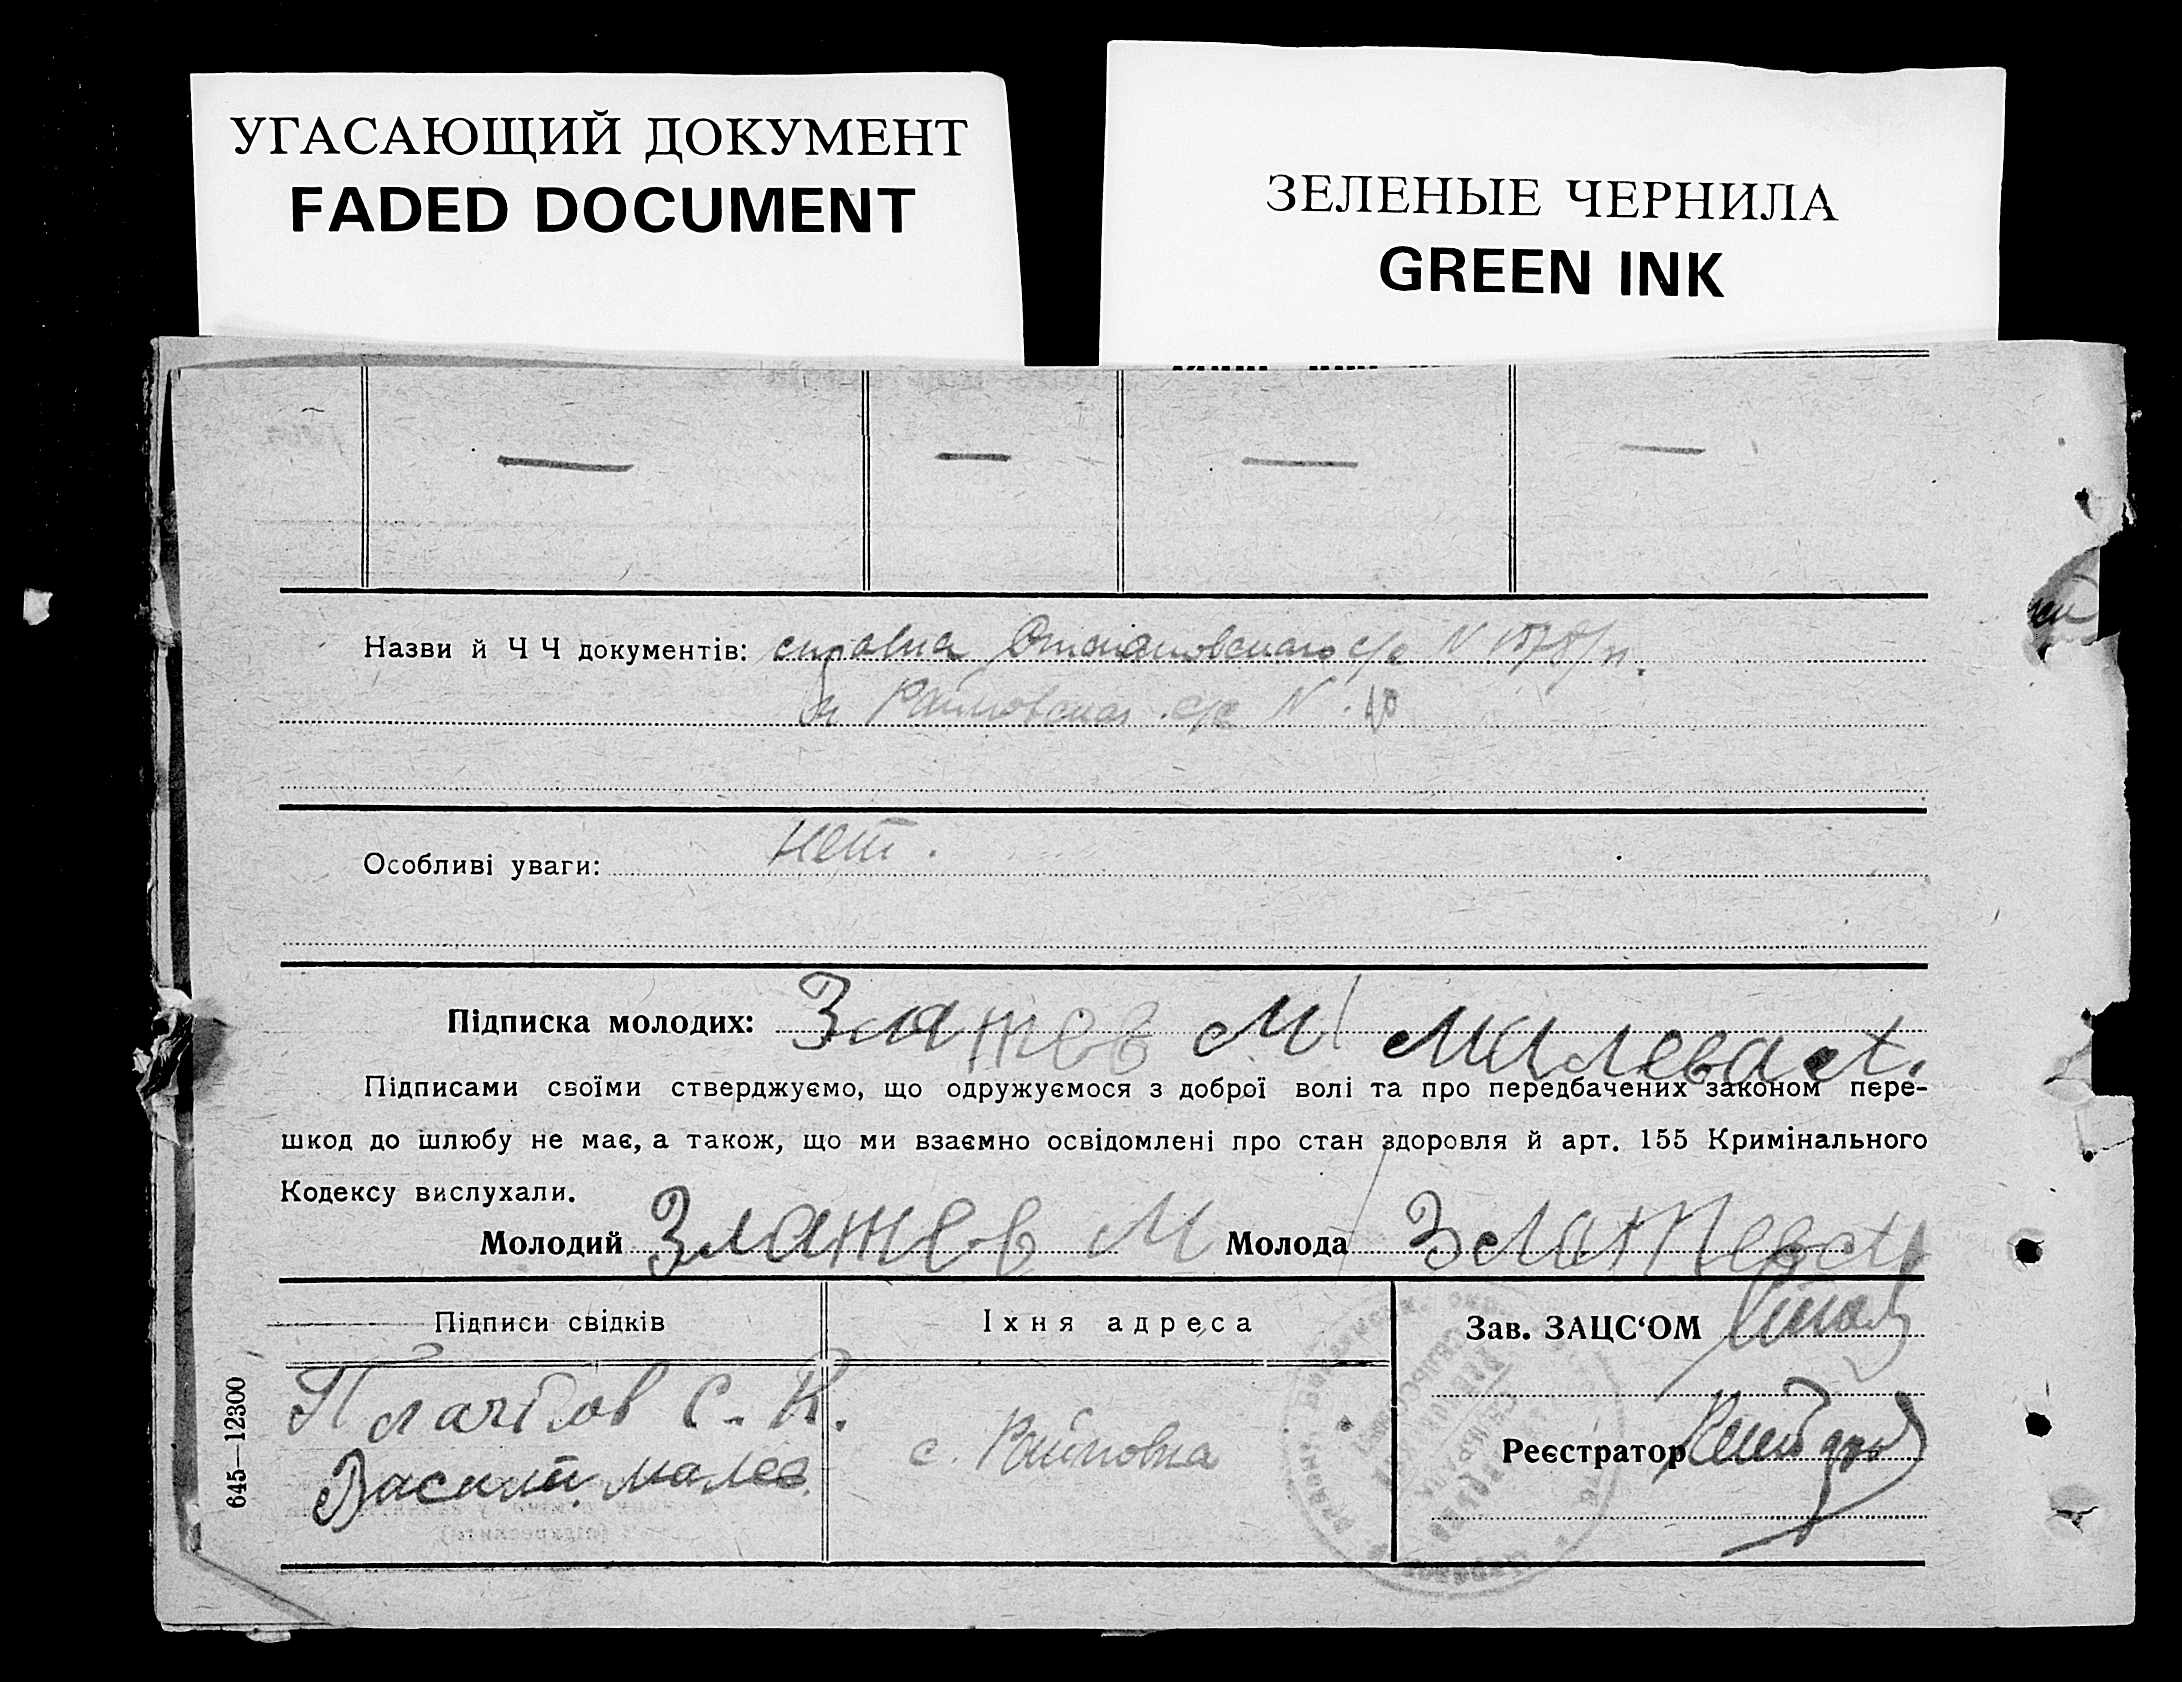 УГАСАЮЩИЙ ДОКУМЕНТ
FADED DOCUMENT
ЗЕЛЕНЫЕ ЧЕРНИЛА
GREEN INK
Назви й Ч Ч документів: справка с/с N
и Райновская с/с N
Особливі уваги: нет.
Підписка молодих: Златев М Малева А.
Підписами своїми стверджуємо, що одружуємося з доброї волі та про передбачених законом пере-
шкод до шлюбу не має, а також, що ми взаємно освідомлені про стан здоровля й арт. 155 Кримінального
Кодексу вислухали.
Молодий Златев М Молода Златева А
Підписи свідків
Їхня адреса
Зав. ЗАЦС‘ОМ
С. К.
Василий Малев
с. Райновка
Реєстратор
645—12300